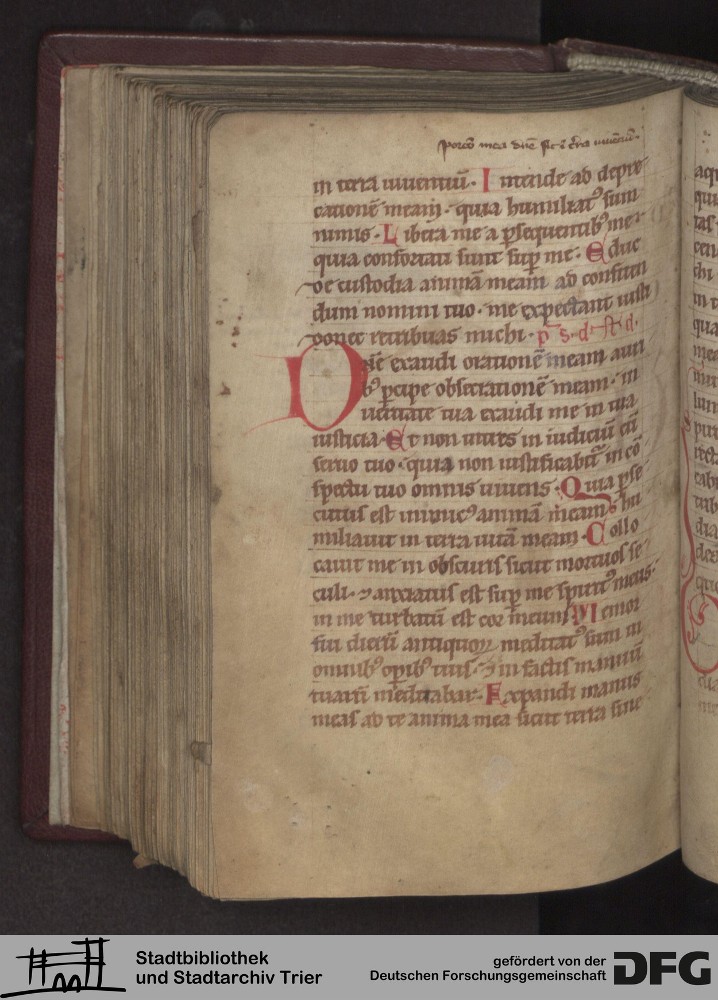 porcō mea dn̄e sit ī t̄ra uiuentiū.
in terra uiuentiū. Intende ad depre
cationē meam. quia humiliatꝰ sum
nimis. Libera me a ꝑsequentibꝰ me
quia confortati sunt suꝑ me. Educ
de custodia animā meam ad confiten
dum nomini tuo. me expectant iusti
donec retribuas michi.
Dn̄e exaudi orationē meam auri
bꝰ ꝑcipe obsecrationē meam. in
ueritate tua exaudi me in tua
iusticia. Et non intres in iudiciū cū
seruo tuo. quia non iustificabit᷑ in cō
spectu tuo omnis uiuens. Quia ꝑse
cutus est inimicꝰ animā meam hu
miliauit in terra uitā meam. Collo
cauit me in obscuris sicut mortuos se
culi. ⁊ anxiatus est suꝑ me spiritꝰ meus.
in me turbatū est cor meum. Memor
fui dierū antiquoꝝ meditatꝰ sum in
omnibꝰ oꝑibꝰ tuis. ⁊ in factis manuū
tuarū meditabar. Expandi manus
meas ad te anima mea sicut terra sine
Stadtbibliothek
und Stadtarchiv Trier
gefördert von der
Deutschen Forschungsgemeinschaft
DFG